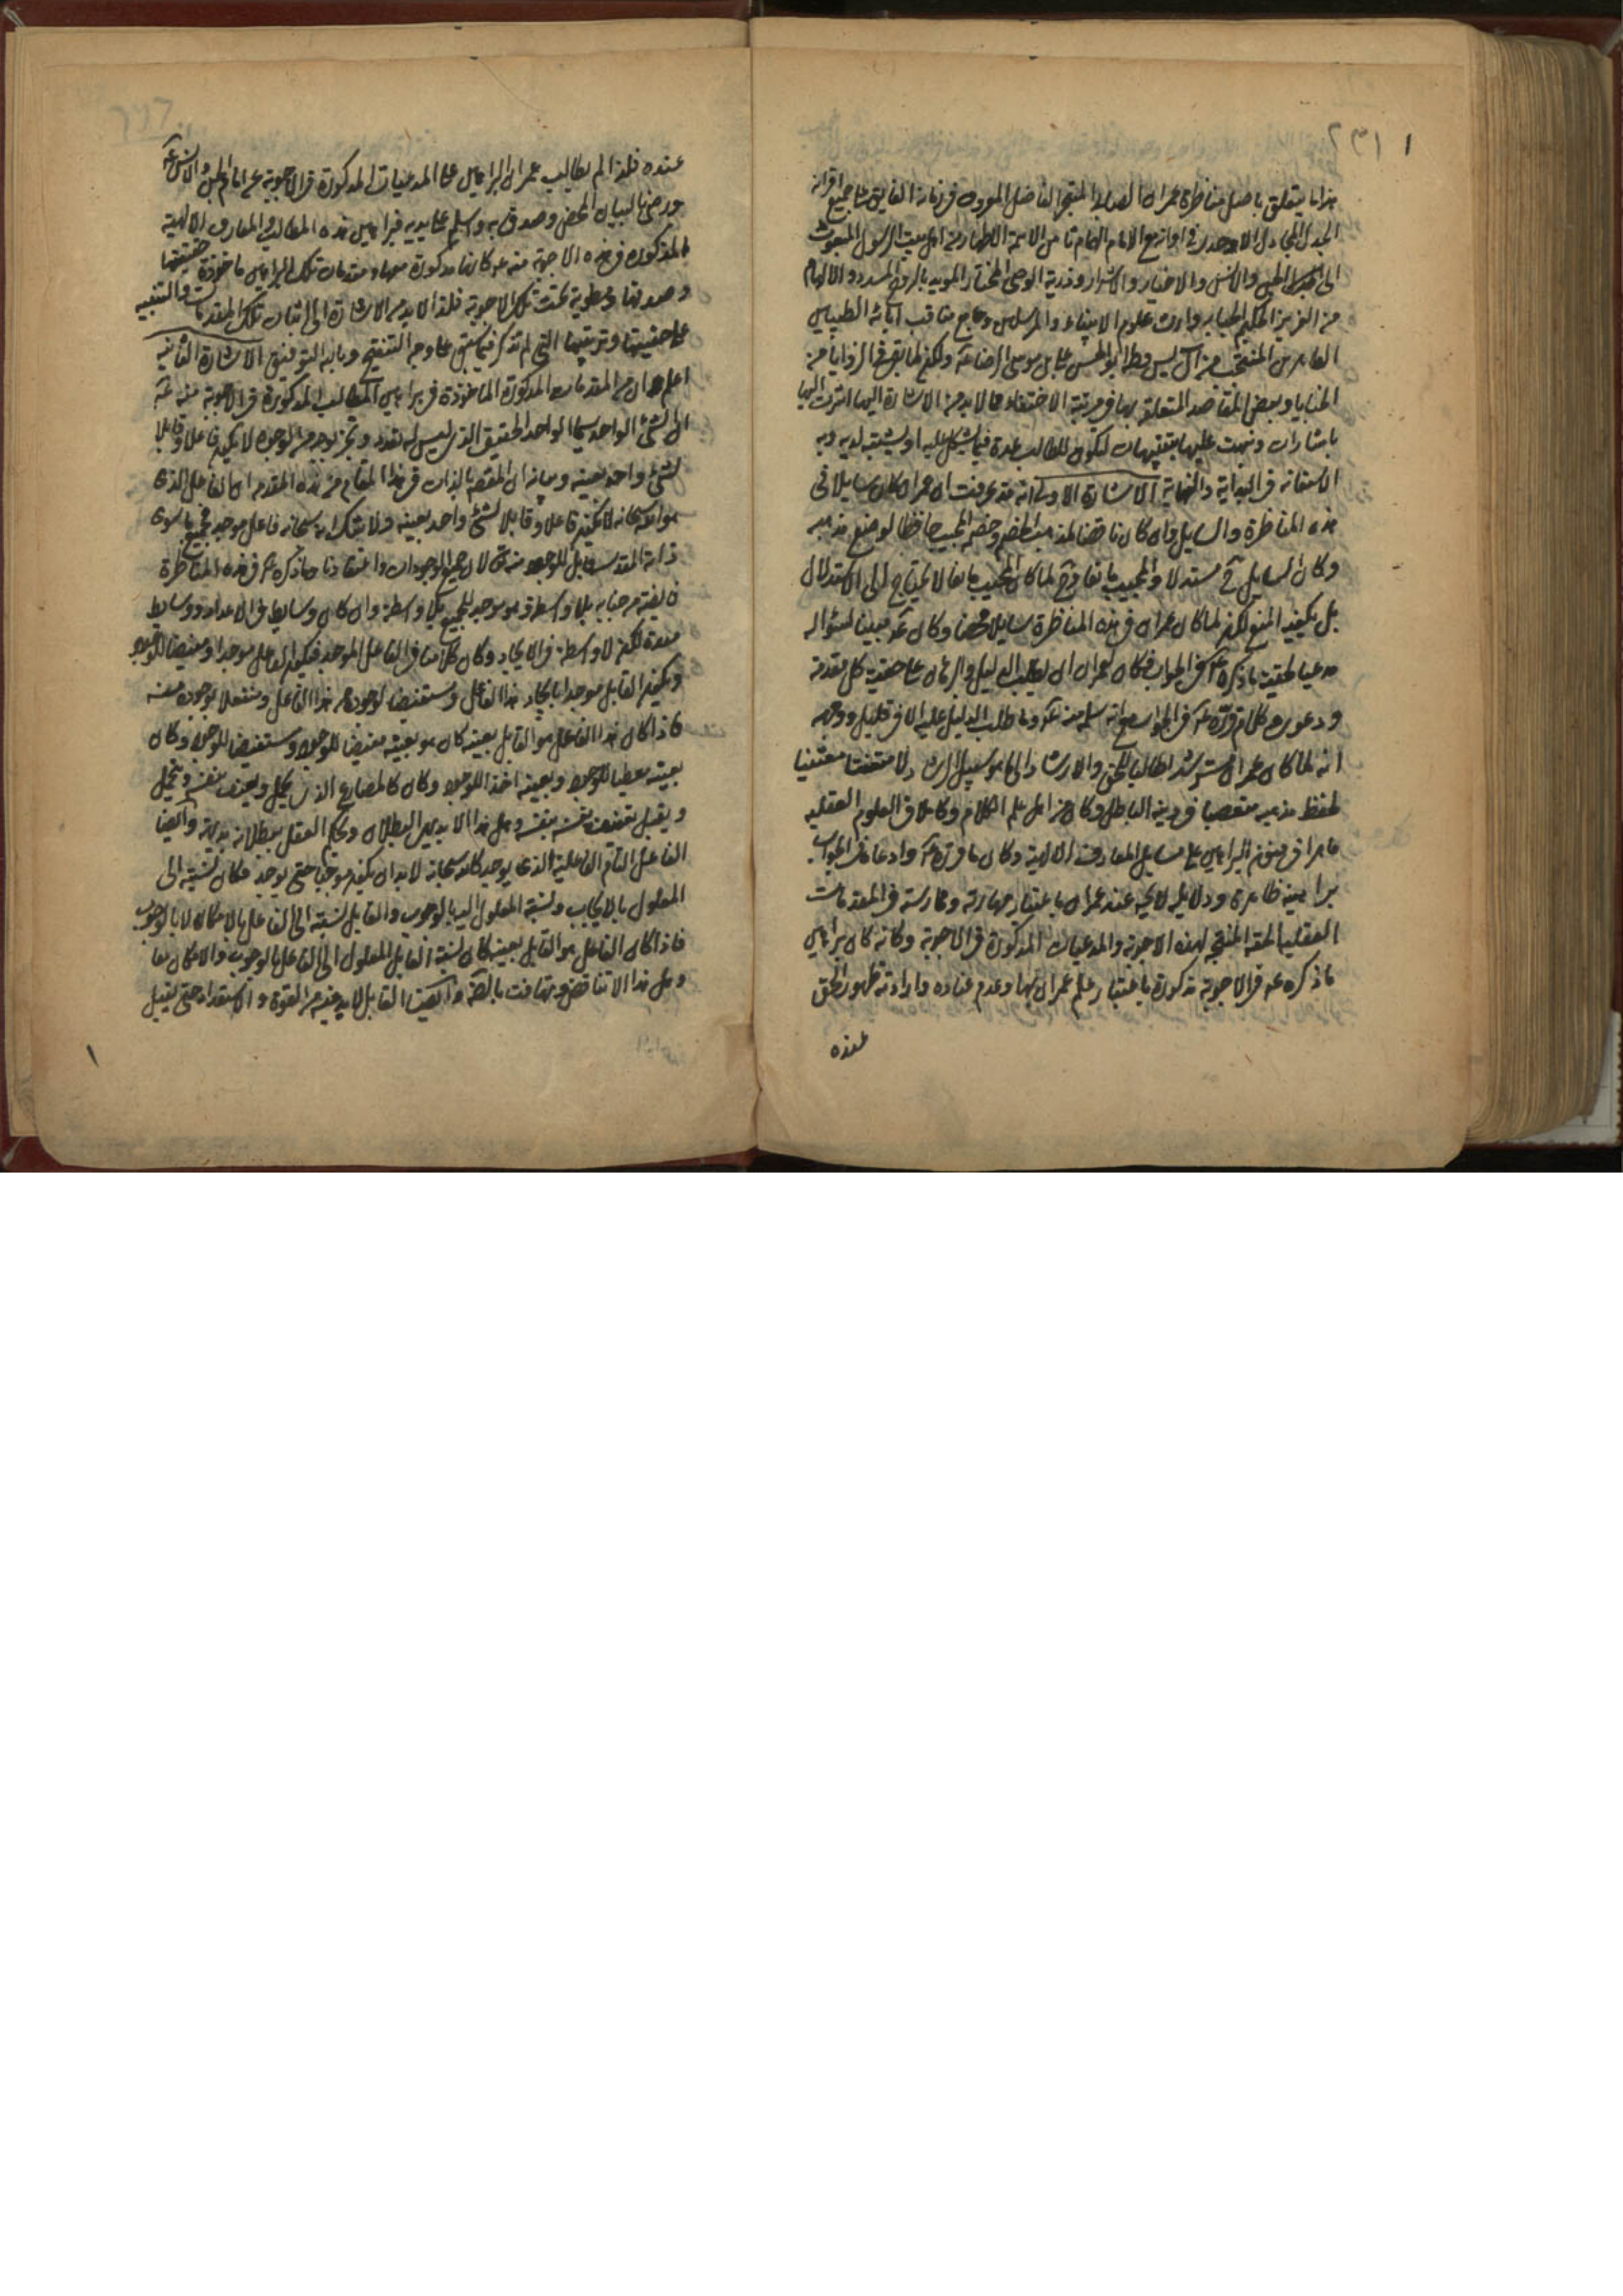 ٢٣١
هذا ما يتعلق باصل مناظرة عمران الصابي المتبحر الفاضل المعروف في زمانه الفايق على جميع اقرانه
الجدل المجادل الاوحدي في اوانه مع الامام الهمام ثامن الائمة الاطهار من اهل بيت الرسول المبعوث
الى الجن والانس والاخيار والاشرار وذرية الوصي المختار المويد بالروح المسدد والالهام
من العزيز الحكيم الجبار وارث علوم الانبياء والمرسلين وجامع مناقب آبائه الطيبين
الطاهرين المنتجب من آل يس وطه ابو الحسن علي بن موسى الرضا عه ولكن لما بقي في الزوايا من
الخبايا وبعض المقاصد المتعلق بها في مرتبة الاختفاء مما لابد من الاشارة اليها اشرت اليها
باشارات ونبهت عليها بتنبيهات لتكون للطالب عدة فيما يشكل عليه او يشتبه لديه وبه
الاستعانه في البداية والنهاية الاشارة الاولى انه قد عرفت ان عمران كان سايلا في
هذه المناظرة والسايل وان كان ناقضا لمذهب الخصم وخصم المجيب حافظا لوضع مذهبه
وكان السايل ح مستدلا والمجيب مانعا وح لما كان المجيب مانعا لا يحتاج الى الاستدلال
بل يكفيه المنع لكن لما كان عمران في هذه المناظرة سايلا محضا وكان عه مجيبا لسؤاله
مدعيا لحقية ما ذكره عه في الجواب فكان لعمران ان يطلب الدليل والبرهان على حقية كل مقدمة
ودعوى وكلام قرره عه في الجواب مع انه سلم منه عه وما طلب الدليل عليه الا في قليل ووجهه
انه لما كان عمران مسترشدا طالبا للحق والارشاد الى ما هو سبيل الرشد ولا متعنتا معتنيا
لحفظ مذهبه متعصبا في دينه الباطل وكان من اهل علم الكلام وكاملا في العلوم العقليه
ماهرا في فنون البراهين على مسايل المعارف الالهية وكان ما قرره عه وادعاه في الجواب
براهينه ظاهرة ودلايله لايحه عند عمران باعتبار مهارته وممارسته في المقدمات
العقلية الحقه المنتج لهذه الاجوبة والمدعيات المذكورة في الاجوبة وكانه كان براهين
ما ذكره عه في الاجوبة مذكورة باعتبار علم عمران بها وعدم عناده وارادته ظهور الحق
عنده
عنده فلذا لم يطالب عمران البراهين على المدعيات المذكورة في الاجوبة عن امام الجن والانس عه
ورضي بالبيان المحض وصدق به وسلم على يديه فبراهين هذه المطالب في المعارف الالهية
المذكورة في هذه الاجوبة منه عه كانها مذكورة معها ومقدمات تلك البراهين ماخوذة حقيقتها
وصدقها ومطوية تحت تلك الاجوبة فلذا لابد من الاشارة الى اثبات تلك المقدمات والتنبيه
على حقيتها وترتيبها التي لم تذكر فيما سبق على وجه التنقيح وبالله التوفيق الاشارة الثانيه
اعلم ان من المقدمات المذكورة الماخوذة في براهين المطالب المذكورة في الاجوبة منه عه
ان الشئ الواحد سيما الواحد الحقيقي الذي ليس له تعدد وتجز بوجه من الوجوه لا يكون فاعلا وقابلا
لشئ واحد بعينه وبيانه ان المقصد بالذات في هذا المقام من هذه المقدمه ان الفاعل الذي
هو الله سبحانه لا يكون فاعلا وقابلا لشئ واحد بعينه ولا شك انه سبحانه فاعل موجد لجميع ما سوى
ذاته المقدسه قابل للوجود منه تع لان جميع الموجودات واعتقادنا وما ذكره عه في هذه المناظرة
فايضة من جنابه بلا واسطة وهو موجد الجميع بلا واسطة وان كان وسايط في الاعداد ووسايط
معدة لكن لا واسطة في الايجاد وكان كلامنا في الفاعل الموجد فيكون الفاعل موجدا ومفيضا للوجود
ويكون القابل موجدا بايجاد هذا الفاعل ومستفيضا لوجوده من هذا الفاعل ومنفعلا بوجوده منه
فاذا كان هذا الفاعل هو القابل بعينه كان هو بعينه مفيضا للوجود ومستفيضا للوجود وكان
بعينه معطيا للوجود وبعينه اخذ الوجود وكان كالمصارع الذي يحمل ويعنف بنفسه ويتحمل
ويقبل تعنيف نفسه بنفسه وهل هذا الا بديهي البطلان ويحكم العقل ببطلانه بديهة وايضا
الفاعل التام الفاعلية الذي يوجد كالله سبحانه لابد ان يكون موجبا حتى يوجد فكان نسبته الى
المعلول بالايجاب ونسبة المعلول اليه بالوجوب والقابل نسبته الى الفاعل بالامكان لا بالوجوب
فاذا كان الفاعل هو القابل بعينه كان نسبة القابل المعلول الى الفاعل بالوجوب والامكان معا
وهل هذا الا تناقض وتهافت بالضرورة وايضا القابل لابد فيه من القوة والاستعداد حتى يقبل